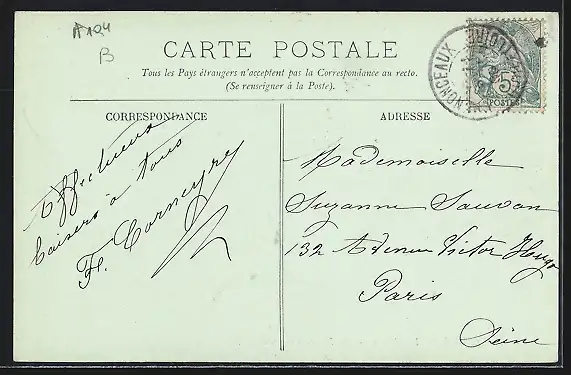 A 104
B
CARTE POSTALE
Tous les Pays étrangers n'acceptent pas la Correspondance au recto.
(Se renseigner à la Poste).
CORRESPONDANCE
ADRESSE
CHENONCEAUX
5c
POSTES
Affectueux
baisers à tous
F. Corneyre
Mademoiselle
Suzanne Sauvan
132 Avenue Victor Hugo
Paris
Seine